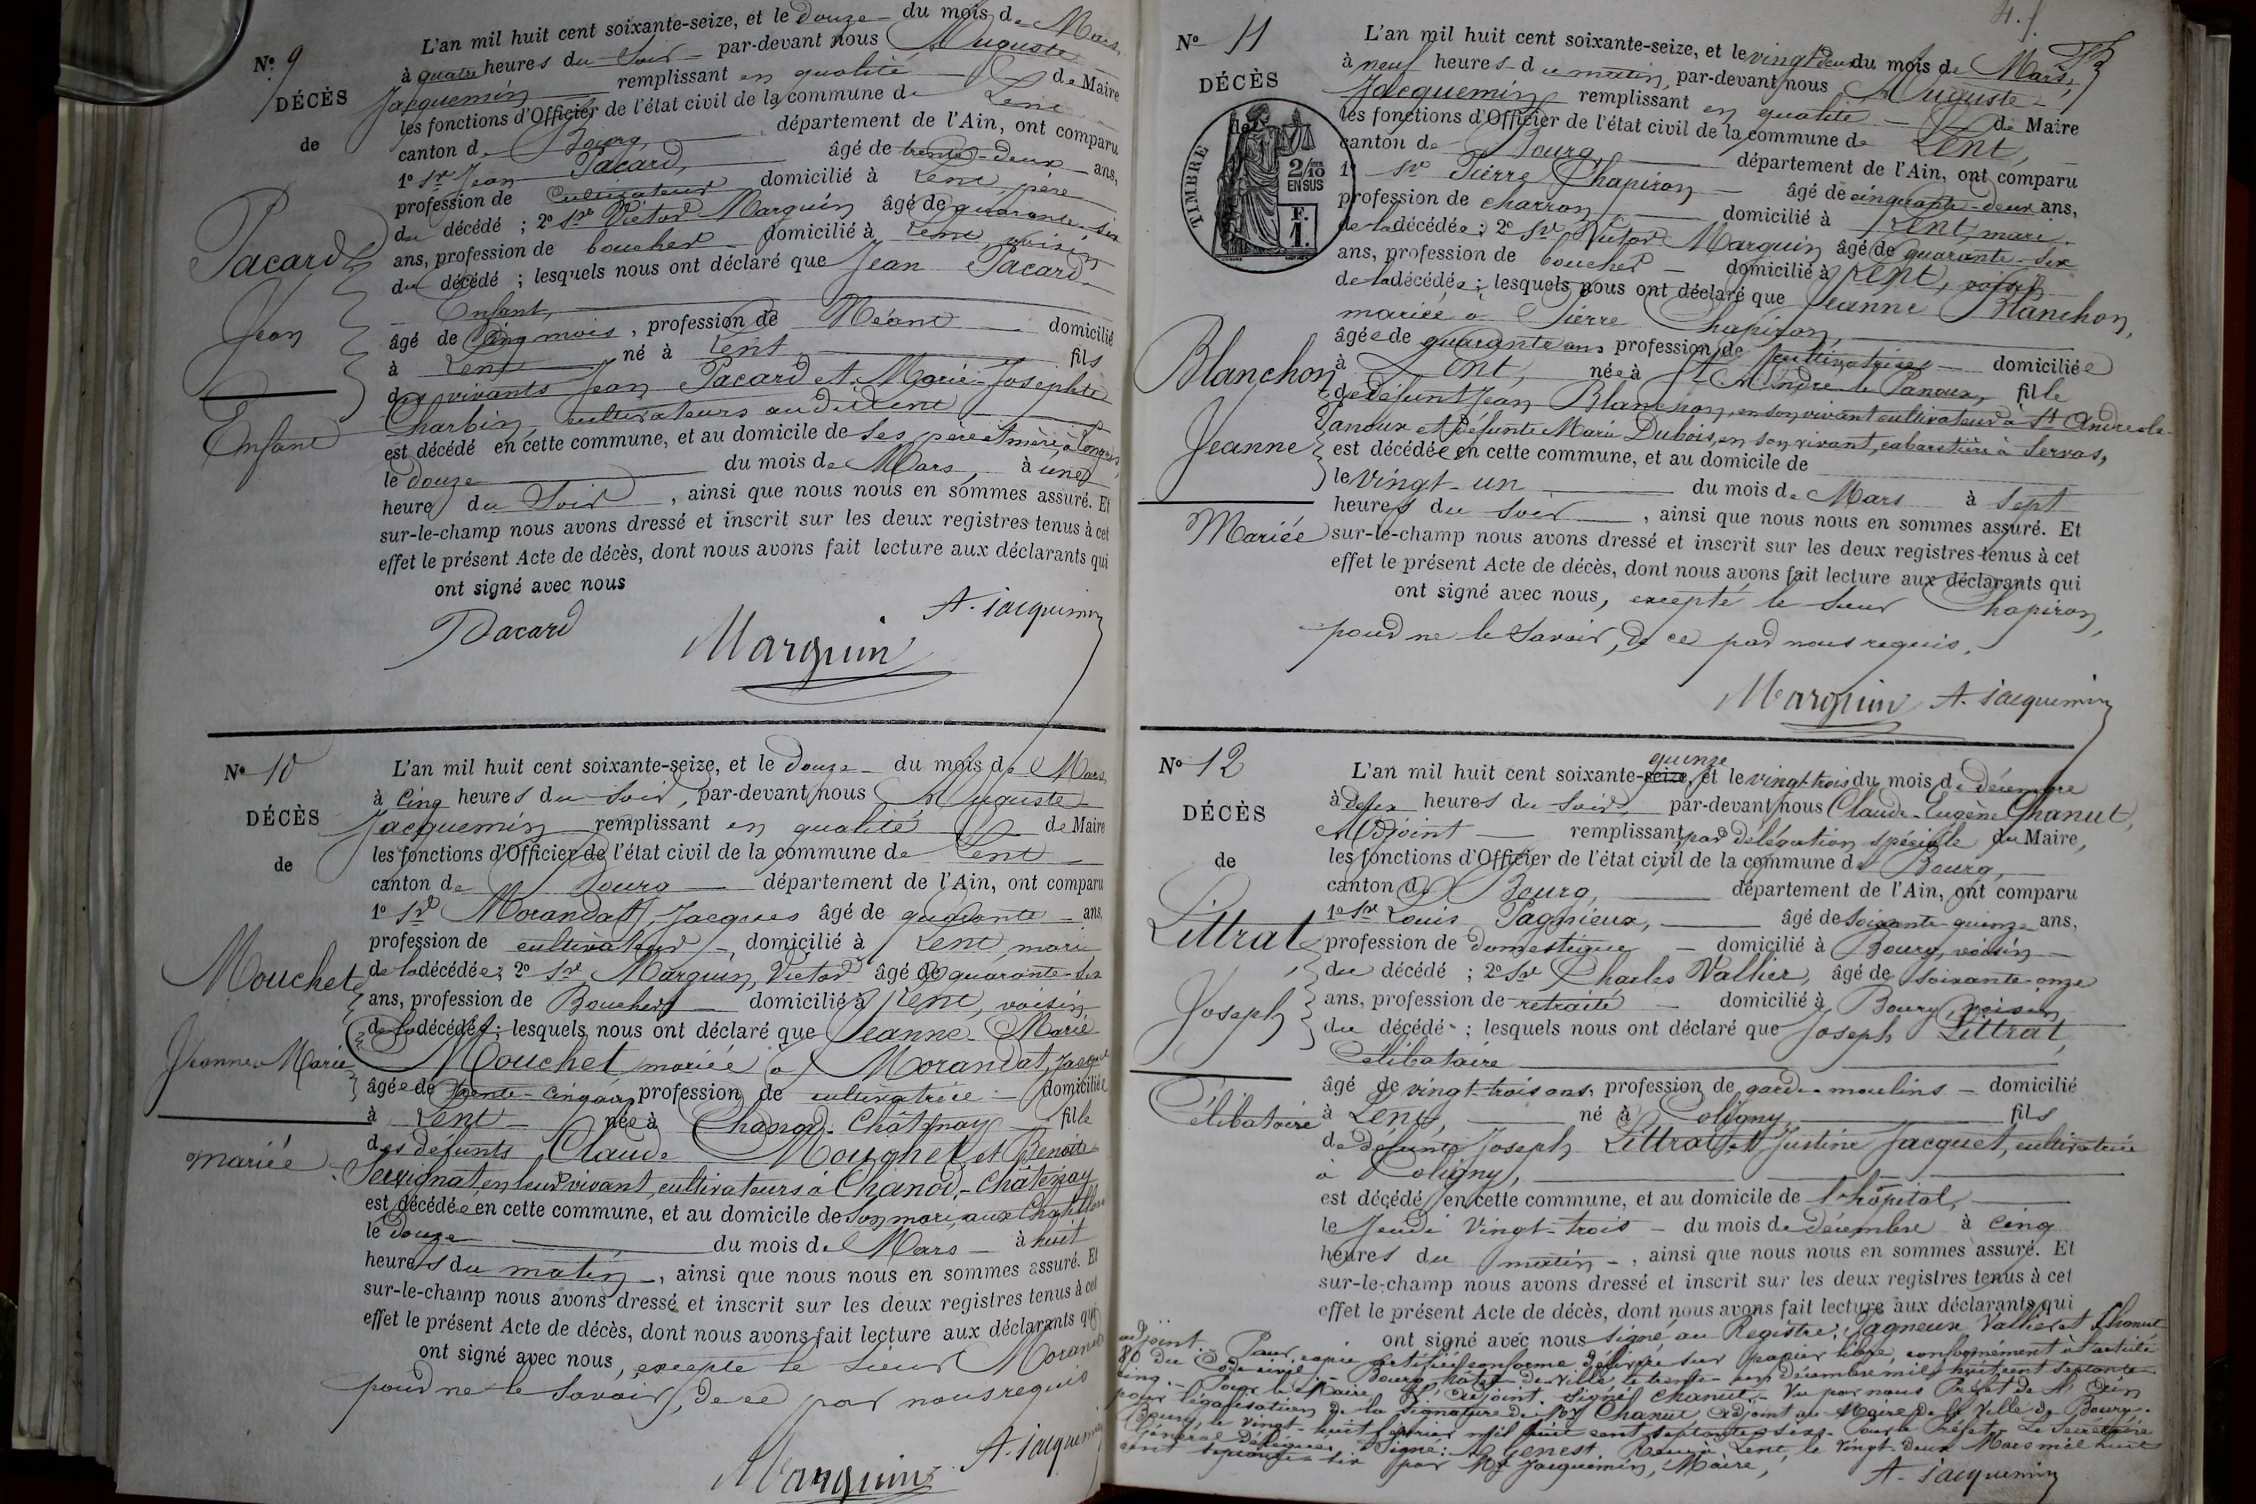 N° 9
DÉCÈS
de
Pacard
Jean
Enfant
L'an mil huit cent soixante-seize, et le douze du mois de Mars,
à quatre heures du Soir par-devant nous Auguste
Jacquemin remplissant en qualité de Maire
les fonctions d'Officier de l'état civil de la commune de Lent
canton de Bourg, département de l'Ain, ont comparu
1° Sr Jean Pacard, âgé de trente-deux ans,
profession de Cultivateur domicilié à Lent, père
du décédé ; 2° Sr Victor Marguin âgé de quarante-six
ans, profession de boucher domicilié à Lent, voisin
du décédé ; lesquels nous ont déclaré que Jean Pacard
Enfant,
âgé de Cinq mois, profession de Néant domicilié
à Lent né à Lent fils
des vivants Jean Pacard et Marie-Josephte
Charbin, cultivateurs audit Lent
est décédé en cette commune, et au domicile de ses père et mère, à Longris,
le douze du mois de Mars, à une
heure du Soir, ainsi que nous nous en sommes assuré. Et
sur-le-champ nous avons dressé et inscrit sur les deux registres tenus à cet
effet le présent Acte de décès, dont nous avons fait lecture aux déclarants qui
ont signé avec nous
A. jacquemin
Pacard
Marguin
N° 10
DÉCÈS
de
Mouchet
Jeanne-Marie
mariée
L'an mil huit cent soixante-seize, et le douze du mois de Mars,
à Cinq heures du Soir, par-devant nous Auguste
Jacquemin remplissant en qualité de Maire
les fonctions d'Officier de l'état civil de la commune de Lent
canton de Bourg département de l'Ain, ont comparu
1° Sr Morandat, Jacques âgé de quarante ans,
profession de cultivateur, domicilié à Lent, mari
de la décédée ; 2° Sr Marguin, Victor âgé de quarante-six
ans, profession de Boucher domicilié à Lent, voisin
de la décédée ; lesquels nous ont déclaré que Jeanne-Marie
Mouchet mariée à Morandat, Jacques
âgée de trente-cinq ans, profession de cultivatrice domiciliée
à Lent née à Chanoz-Châtenay fille
des défunts Claude Mouchet et Benoite
Servignat, en leur vivant, cultivateurs à Chanoz-Châtenay
est décédée en cette commune, et au domicile de Son mari, aux
le douze du mois de Mars à huit
heures du matin, ainsi que nous nous en sommes assuré. Et
sur-le-champ nous avons dressé et inscrit sur les deux registres tenus à cet
effet le présent Acte de décès, dont nous avons fait lecture aux déclarants qui
ont signé avec nous, excepté le Sieur Morandat
pour ne le Savoir, de ce par nous requis
A. jacquemin
Marguin
4.
N° 11
DÉCÈS
de
TIMBRE
2/10 EN SUS
F. 1.
Blanchon
Jeanne
Mariée
L'an mil huit cent soixante-seize, et le vingt deux du mois de Mars,
à neuf heures du matin, par-devant nous Auguste
Jacquemin remplissant en qualité de Maire
les fonctions d'Officier de l'état civil de la commune de Lent,
canton de Bourg, département de l'Ain, ont comparu
1° Sr Pierre Chapiron âgé de cinquante-deux ans,
profession de charron domicilié à Lent, mari
de la décédée ; 2° Sr Victor Marguin âgé de quarante-six
ans, profession de boucher domicilié à Lent, voisin
de la décédée ; lesquels nous ont déclaré que Jeanne Blanchon,
mariée à Pierre Chapiron,
âgée de quarante ans profession de cultivatrice domiciliée
à Lent, née à St André-le-Panoux, fille
de défunt Jean Blanchon, en son vivant cultivateur à St André-le-
Panoux et défunte Marie Dubois, en son vivant, cabaretière à Servas,
est décédée en cette commune, et au domicile de
le vingt-un du mois de Mars à Sept
heures du soir, ainsi que nous nous en sommes assuré. Et
sur-le-champ nous avons dressé et inscrit sur les deux registres tenus à cet
effet le présent Acte de décès, dont nous avons fait lecture aux déclarants qui
ont signé avec nous, excepté le Sieur Chapiron,
pour ne le Savoir, de ce par nous requis.
Marguin A. jacquemin
N° 12
DÉCÈS
de
Littrat,
Joseph
Célibataire
quinze
L'an mil huit cent soixante-seize, et le vingt-trois du mois de décembre
à deux heures du Soir, par-devant nous Claude-Eugène Chanut,
Adjoint remplissant par délégation spéciale du Maire,
les fonctions d'Officier de l'état civil de la commune de Bourg,
canton de Bourg, département de l'Ain, ont comparu
1° Sr Louis Pagnieux, âgé de Soixante-quinze ans,
profession de domestique domicilié à Bourg, voisin
du décédé ; 2° Sr Charles Vallier, âgé de soixante-onze
ans, profession de retraité domicilié à Bourg, voisin
du décédé ; lesquels nous ont déclaré que Joseph Littrat,
Célibataire
âgé de vingt-trois ans, profession de garde-moulins domicilié
à Lent, né à Coligny, fils
de défunt Joseph Littrat et Justine Jacquet, cultivatrice
à Coligny,
est décédé en cette commune, et au domicile de l'hôpital,
le Jeudi vingt-trois du mois de décembre à cinq
heures du matin, ainsi que nous nous en sommes assuré. Et
sur-le-champ nous avons dressé et inscrit sur les deux registres tenus à cet
effet le présent Acte de décès, dont nous avons fait lecture aux déclarants qui
ont signé avec nous signé au Registre : Pagneux Vallier et Chanut
adjoint. Pour copie certifiée conforme délivrée sur papier libre, conformément à l'article
80 du Code civil. Bourg, hôtel-de-ville le trente-un décembre mil huit cent septante
cinq. Pour le Maire, adjoint. Signé Chanut. Vu par nous Préfet de l'Ain
pour légalisation de la signature de Mr Chanut, adjoint au Maire de la Ville de Bourg.
Bourg, le vingt-huit février mil huit cent septante-six. Pour le Préfet, Le Secrétaire
Général délégué, Signé : Genest. Reçu à Lent, le vingt-deux Mars mil huit
cent septante-six par Mr Jacquemin, Maire,
A. jacquemin